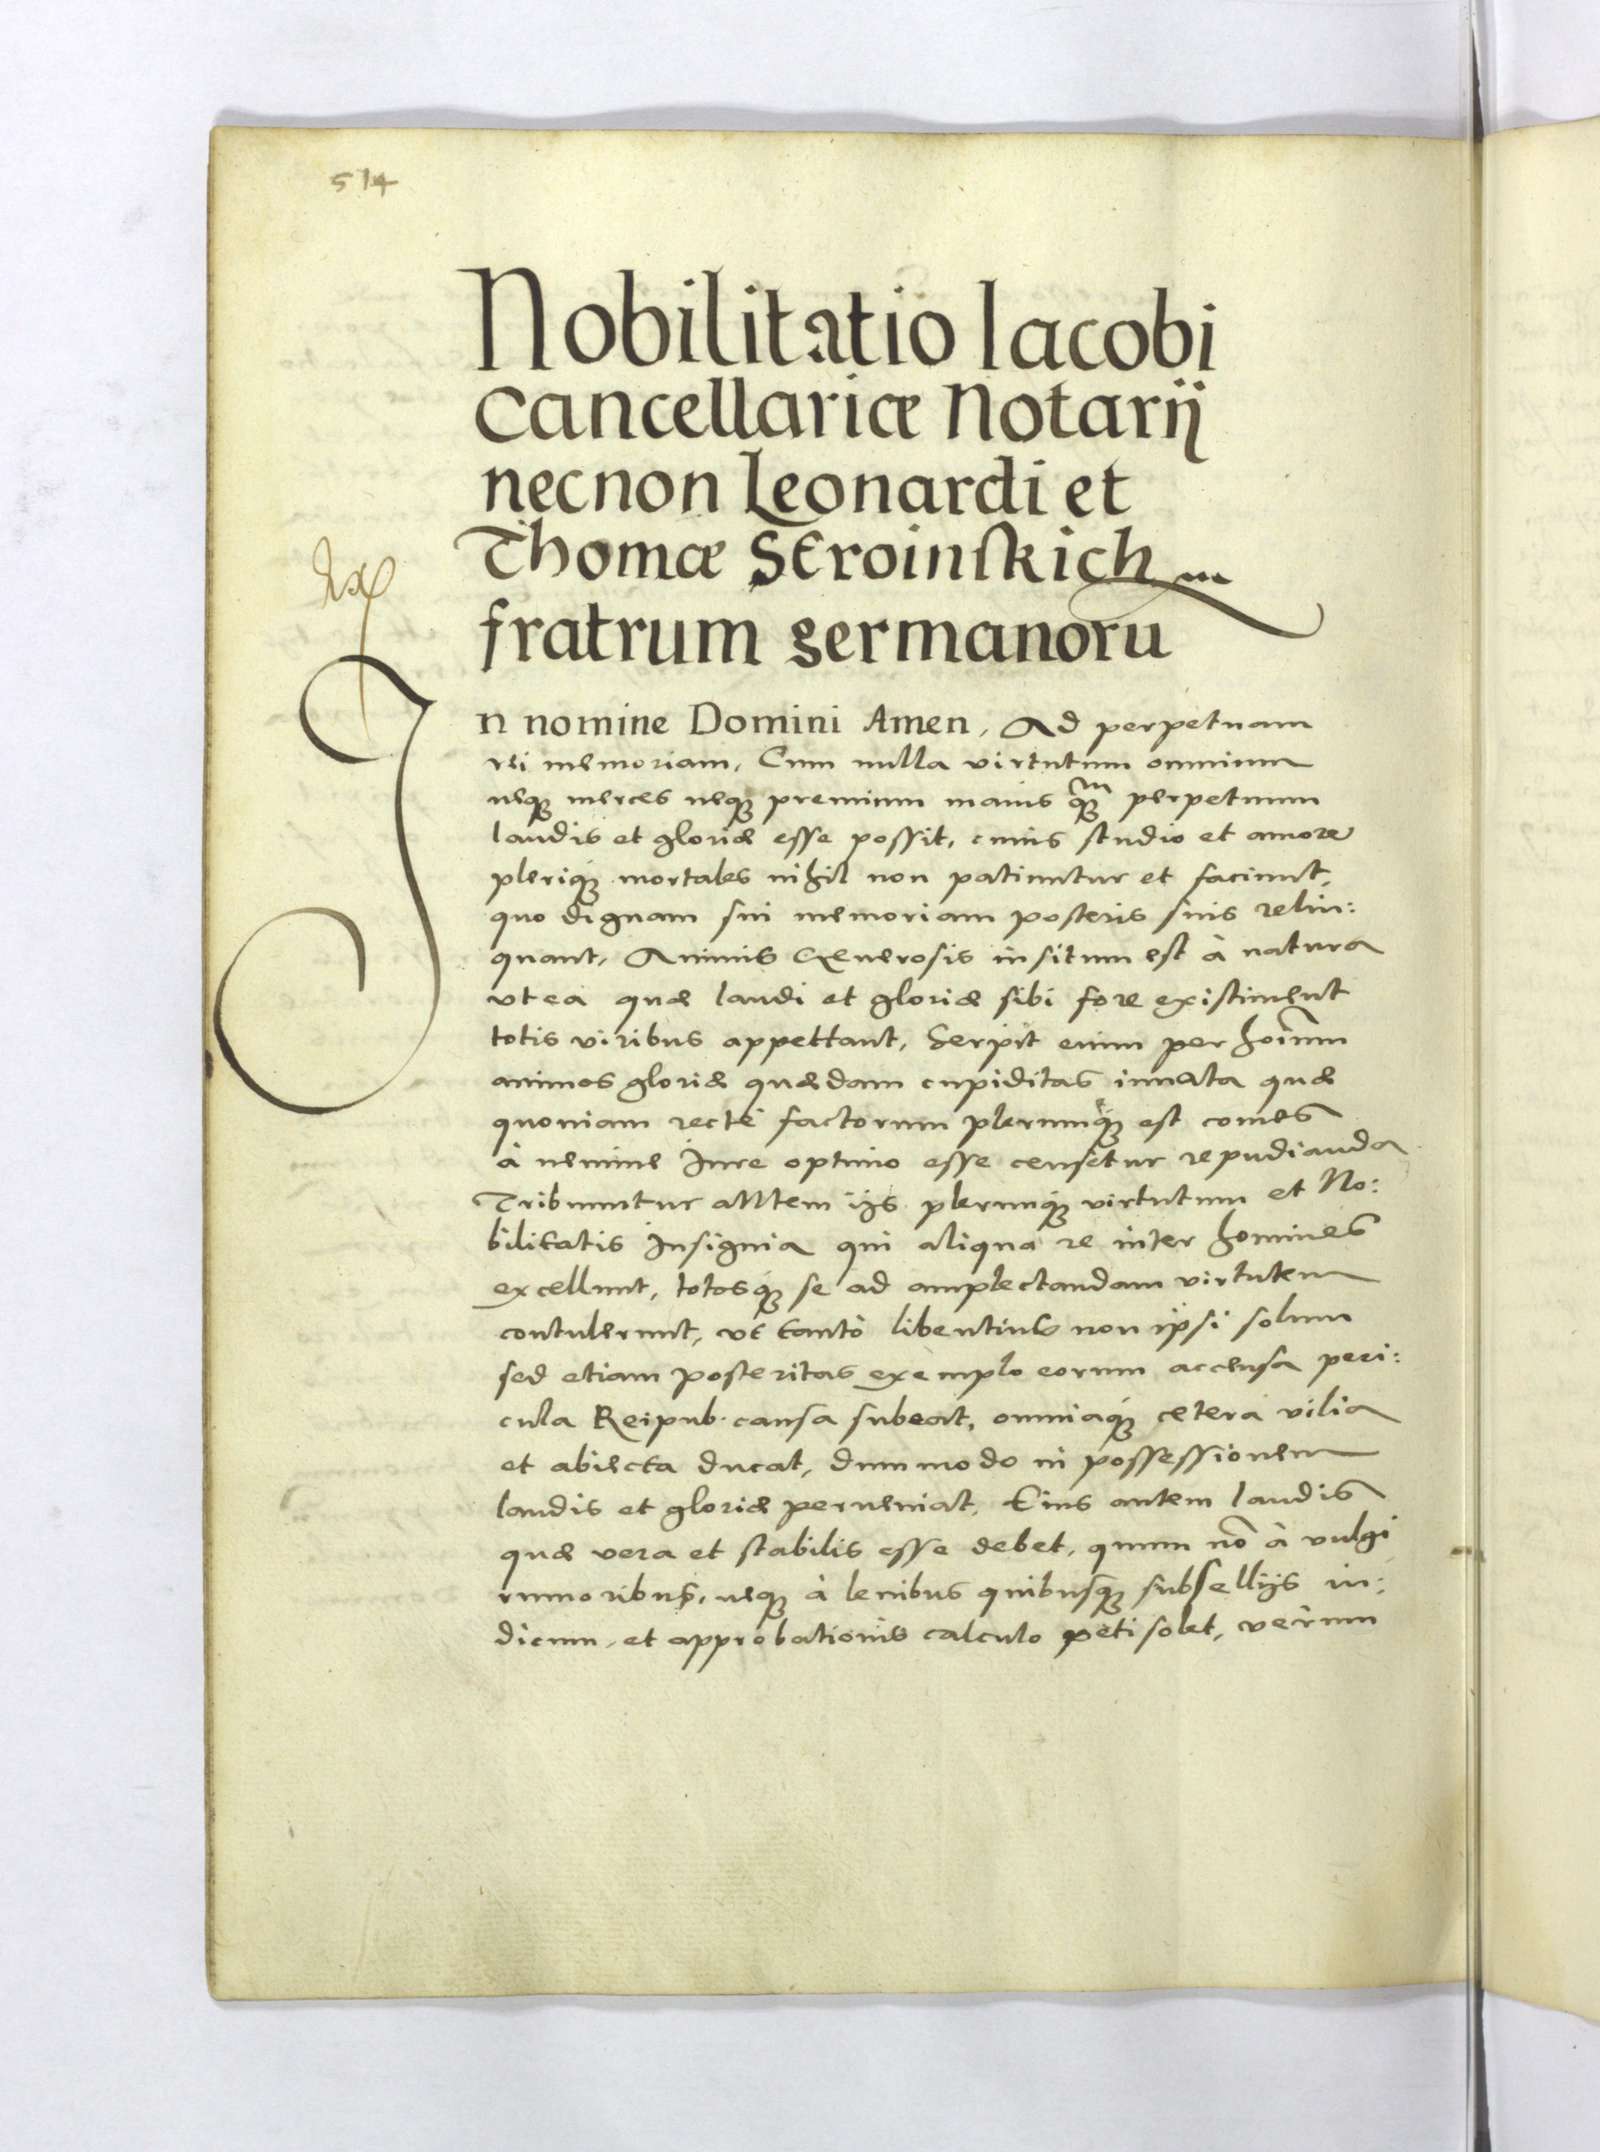 514
Nobilitatio Iacobi
Cancellariæ Notarij
necnon Leonardi et
Thomæ Stroinskich
fratrum germanoru
In nomine Domini Amen, Ad perpetuam
rei memoriam, Cum nulla virtutum omnium
neq3 merces neq3 premium maius q3m perpetuum
laudis et gloriæ esse possit, cuius studio et amore
pleriq3 mortales nihil non patiuntur et faciunt,
quo dignam sui memoriam posteris suis relin:
quant, Animis Generosis insitum est à natura
vt ea quæ laudi et gloriæ sibi fore existiment
totis viribus appettant, Serpit enim per hoim̄
animos gloriæ quædam cupiditas innata quæ
quoniam rectè factorum plerunq3 est comes
à nemine Iure optimo esse censetur repudianda
Tribuuntur autem ijs plerunq3 virtutum et No:
bilitatis Insignia qui aliqua re inter homines
excellunt, totosq3 se ad amplectandam virtutem
contulerunt, vt tantò libentius non ipsi solum
sed etiam posteritas exemplo eorum accensa peri:
cula Reipub. causa subeat, omniaq3 cetera vilia
et abiecta ducat, dummodo in possessionem
laudis et gloriæ perueniat, Eius autem laudis
quæ vera et stabilis esse debet, quum nō à vulgi
rumoribus, neq3 à leuibus quibusq3 subsellijs iu:
dicum, et approbationis calculo peti solet, verum